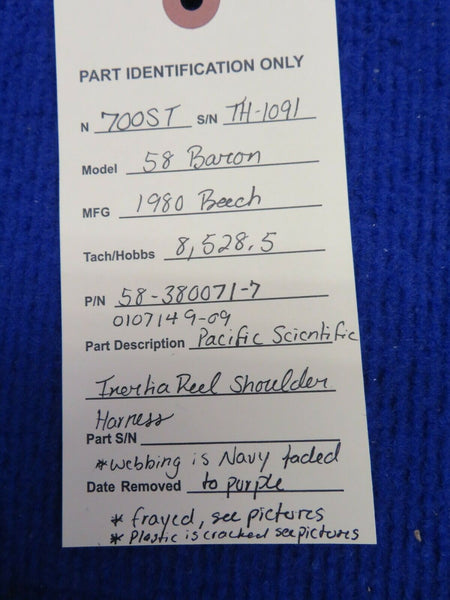 PART IDENTIFICATION ONLY
N 700ST S/N TH-1091
Model 58 Baron
MFG 1980 Beech
Tach/Hobbs 8,528.5
P/N 58-380071-7
0107149-09
Part Description Pacific Scientific
Inertia Reel Shoulder
Harness
Part S/N
*webbing is Navy faded
Date Removed to purple
* frayed, see pictures
* Plastic is cracked see pictures